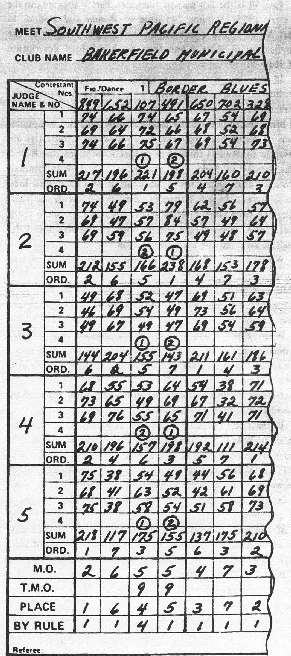 MEET SOUTHWEST PACIFIC REGIONA
CLUB NAME BAKERFIELD MUNICIPAL
JUDGE NAME & NO Contestant Nos. Fig./Dance 1 BORDER BLUES
849 652 107 491 650 702 328
1
1 74 66 74 65 67 54 69
2 69 64 72 66 68 52 68
3 74 66 75 67 69 54 73
4 1 2
SUM 217 196 221 198 204 160 210
ORD. 2 6 1 5 4 7 3
2
1 74 49 53 79 62 56 57
2 69 47 57 84 57 49 64
3 69 59 56 75 49 48 57
4 2 1
SUM 212 155 166 238 168 153 178
ORD. 2 6 5 1 4 7 3
3
1 49 68 52 47 69 51 63
2 46 69 54 49 73 56 64
3 49 67 49 47 69 54 59
4 1 2
SUM 144 204 155 143 211 161 186
ORD. 6 2 5 7 1 4 3
4
1 68 55 53 64 54 38 71
2 73 65 49 69 67 32 72
3 69 76 55 65 71 41 71
4 2 1
SUM 210 196 157 198 192 111 214
ORD. 2 4 6 3 5 7 1
5
1 75 38 54 49 44 56 68
2 68 41 63 52 42 61 69
3 75 38 58 54 51 58 73
4 1 2
SUM 218 117 175 155 137 175 210
ORD. 1 7 3 5 6 3 2
M.O. 2 6 5 5 4 7 3
T.M.O. 9 9
PLACE 1 6 4 5 3 7 2
BY RULE 1 1 4 1 1 1 1
Referee